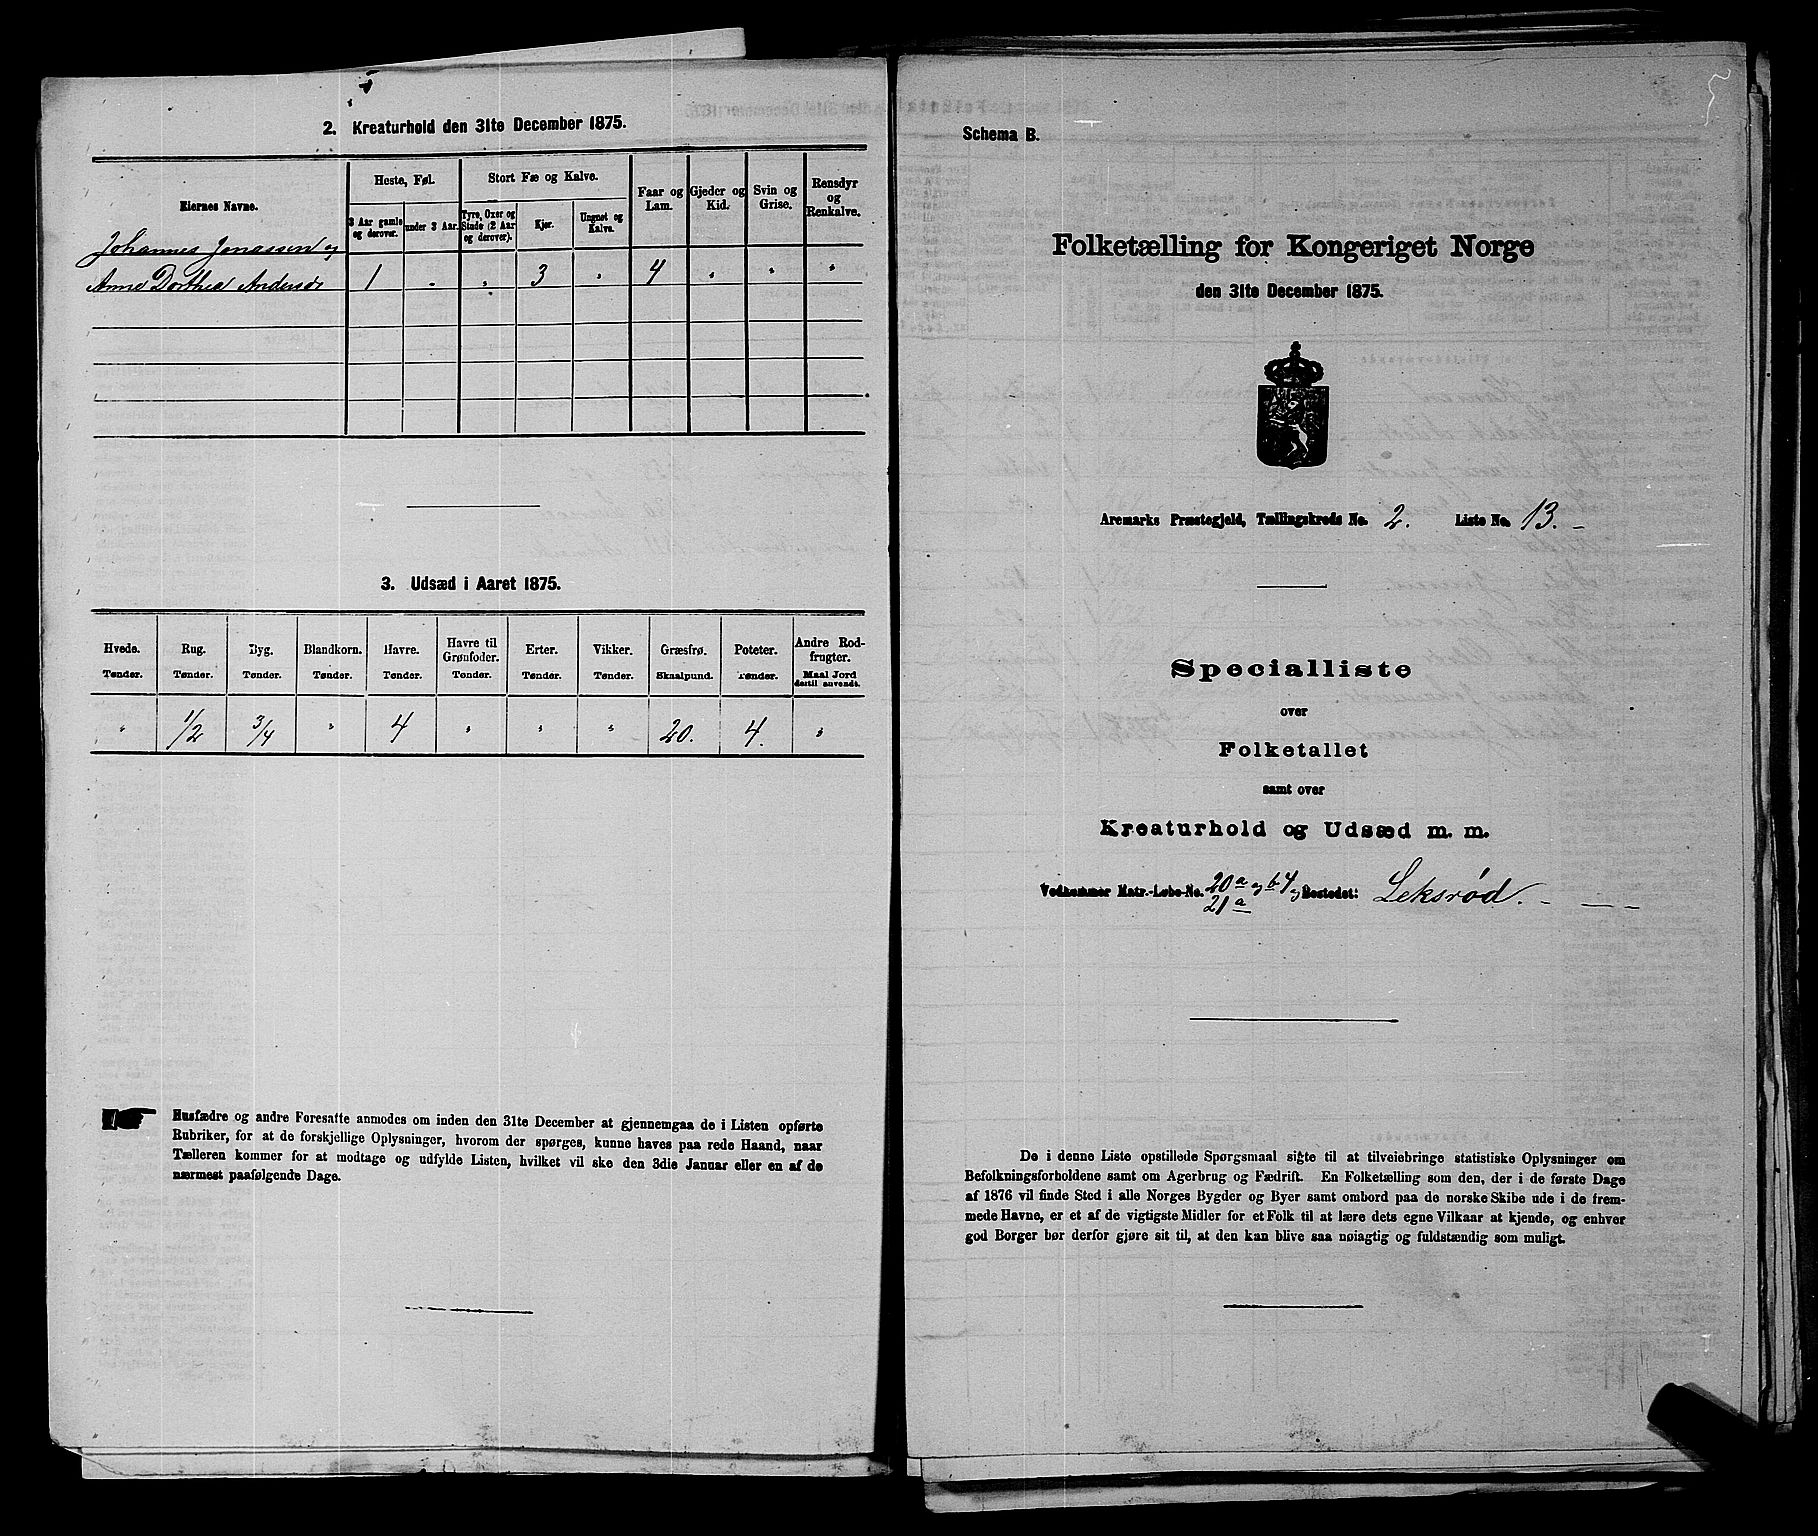 2. Kreaturhold den 31te December 1875.
Eiernes Navne.
Heste, Føl.
Stort Fæ og Kalve.
Faar og Lam.
Gjeder og Kid.
Svin og Grise.
Rensdyr og Renkalve.
3 Aar gamle og derover.
under 3 Aar.
Tyre, Oxer og Stude (2 Aar og derover).
Kjør.
Ungnøt og Kalve.
Johannes Jonassen og
Anne Dorthea Andersdr 1 " " 3 " 4 " " "
3. Udsæd i Aaret 1875.
Hvede. Rug. Byg. Blandkorn. Havre. Havre til Grønfoder. Erter. Vikker. Græsfrø. Poteter. Andre Rodfrugter.
Tønder. Tønder. Tønder. Tønder. Tønder. Tønder. Tønder. Tønder. Skaalpund. Tønder. Maal Jord dertil anvendt.
" 1/2 3/4 " 4 " " " 20. 4. "
Husfædre og andre Foresatte anmodes om inden den 31te December at gjennemgaa de i Listen opførte
Rubriker, for at de forskjellige Oplysninger, hvorom der spørges, kunne haves paa rede Haand, naar
Tælleren kommer for at modtage og udfylde Listen, hvilket vil ske den 3die Januar eller en af de
nærmest paafølgende Dage.
Schema B.
Folketælling for Kongeriget Norge
den 31te December 1875.
Aremarks Præstegjeld, Tællingskreds No. 2. Liste No. 13. -
Specialliste
over
Folketallet
samt over
Kreaturhold og Udsæd m. m.
Vedkommer Matr.-Løbe-No. 20a og b 4 og Bostedet: Leksrød. - - -
21a
De i denne Liste opstillede Spørgsmaal sigte til at tilveiebringe statistiske Oplysninger om
Befolkningsforholdene samt om Agerbrug og Fædrift. En Folketælling som den, der i de første Dage
af 1876 vil finde Sted i alle Norges Bygder og Byer samt ombord paa de norske Skibe ude i de frem-
mede Havne, er et af de vigtigste Midler for et Folk til at lære dets egne Vilkaar at kjende, og enhver
god Borger bør derfor gjøre sit til, at den kan blive saa nøiagtig og fuldstændig som muligt.